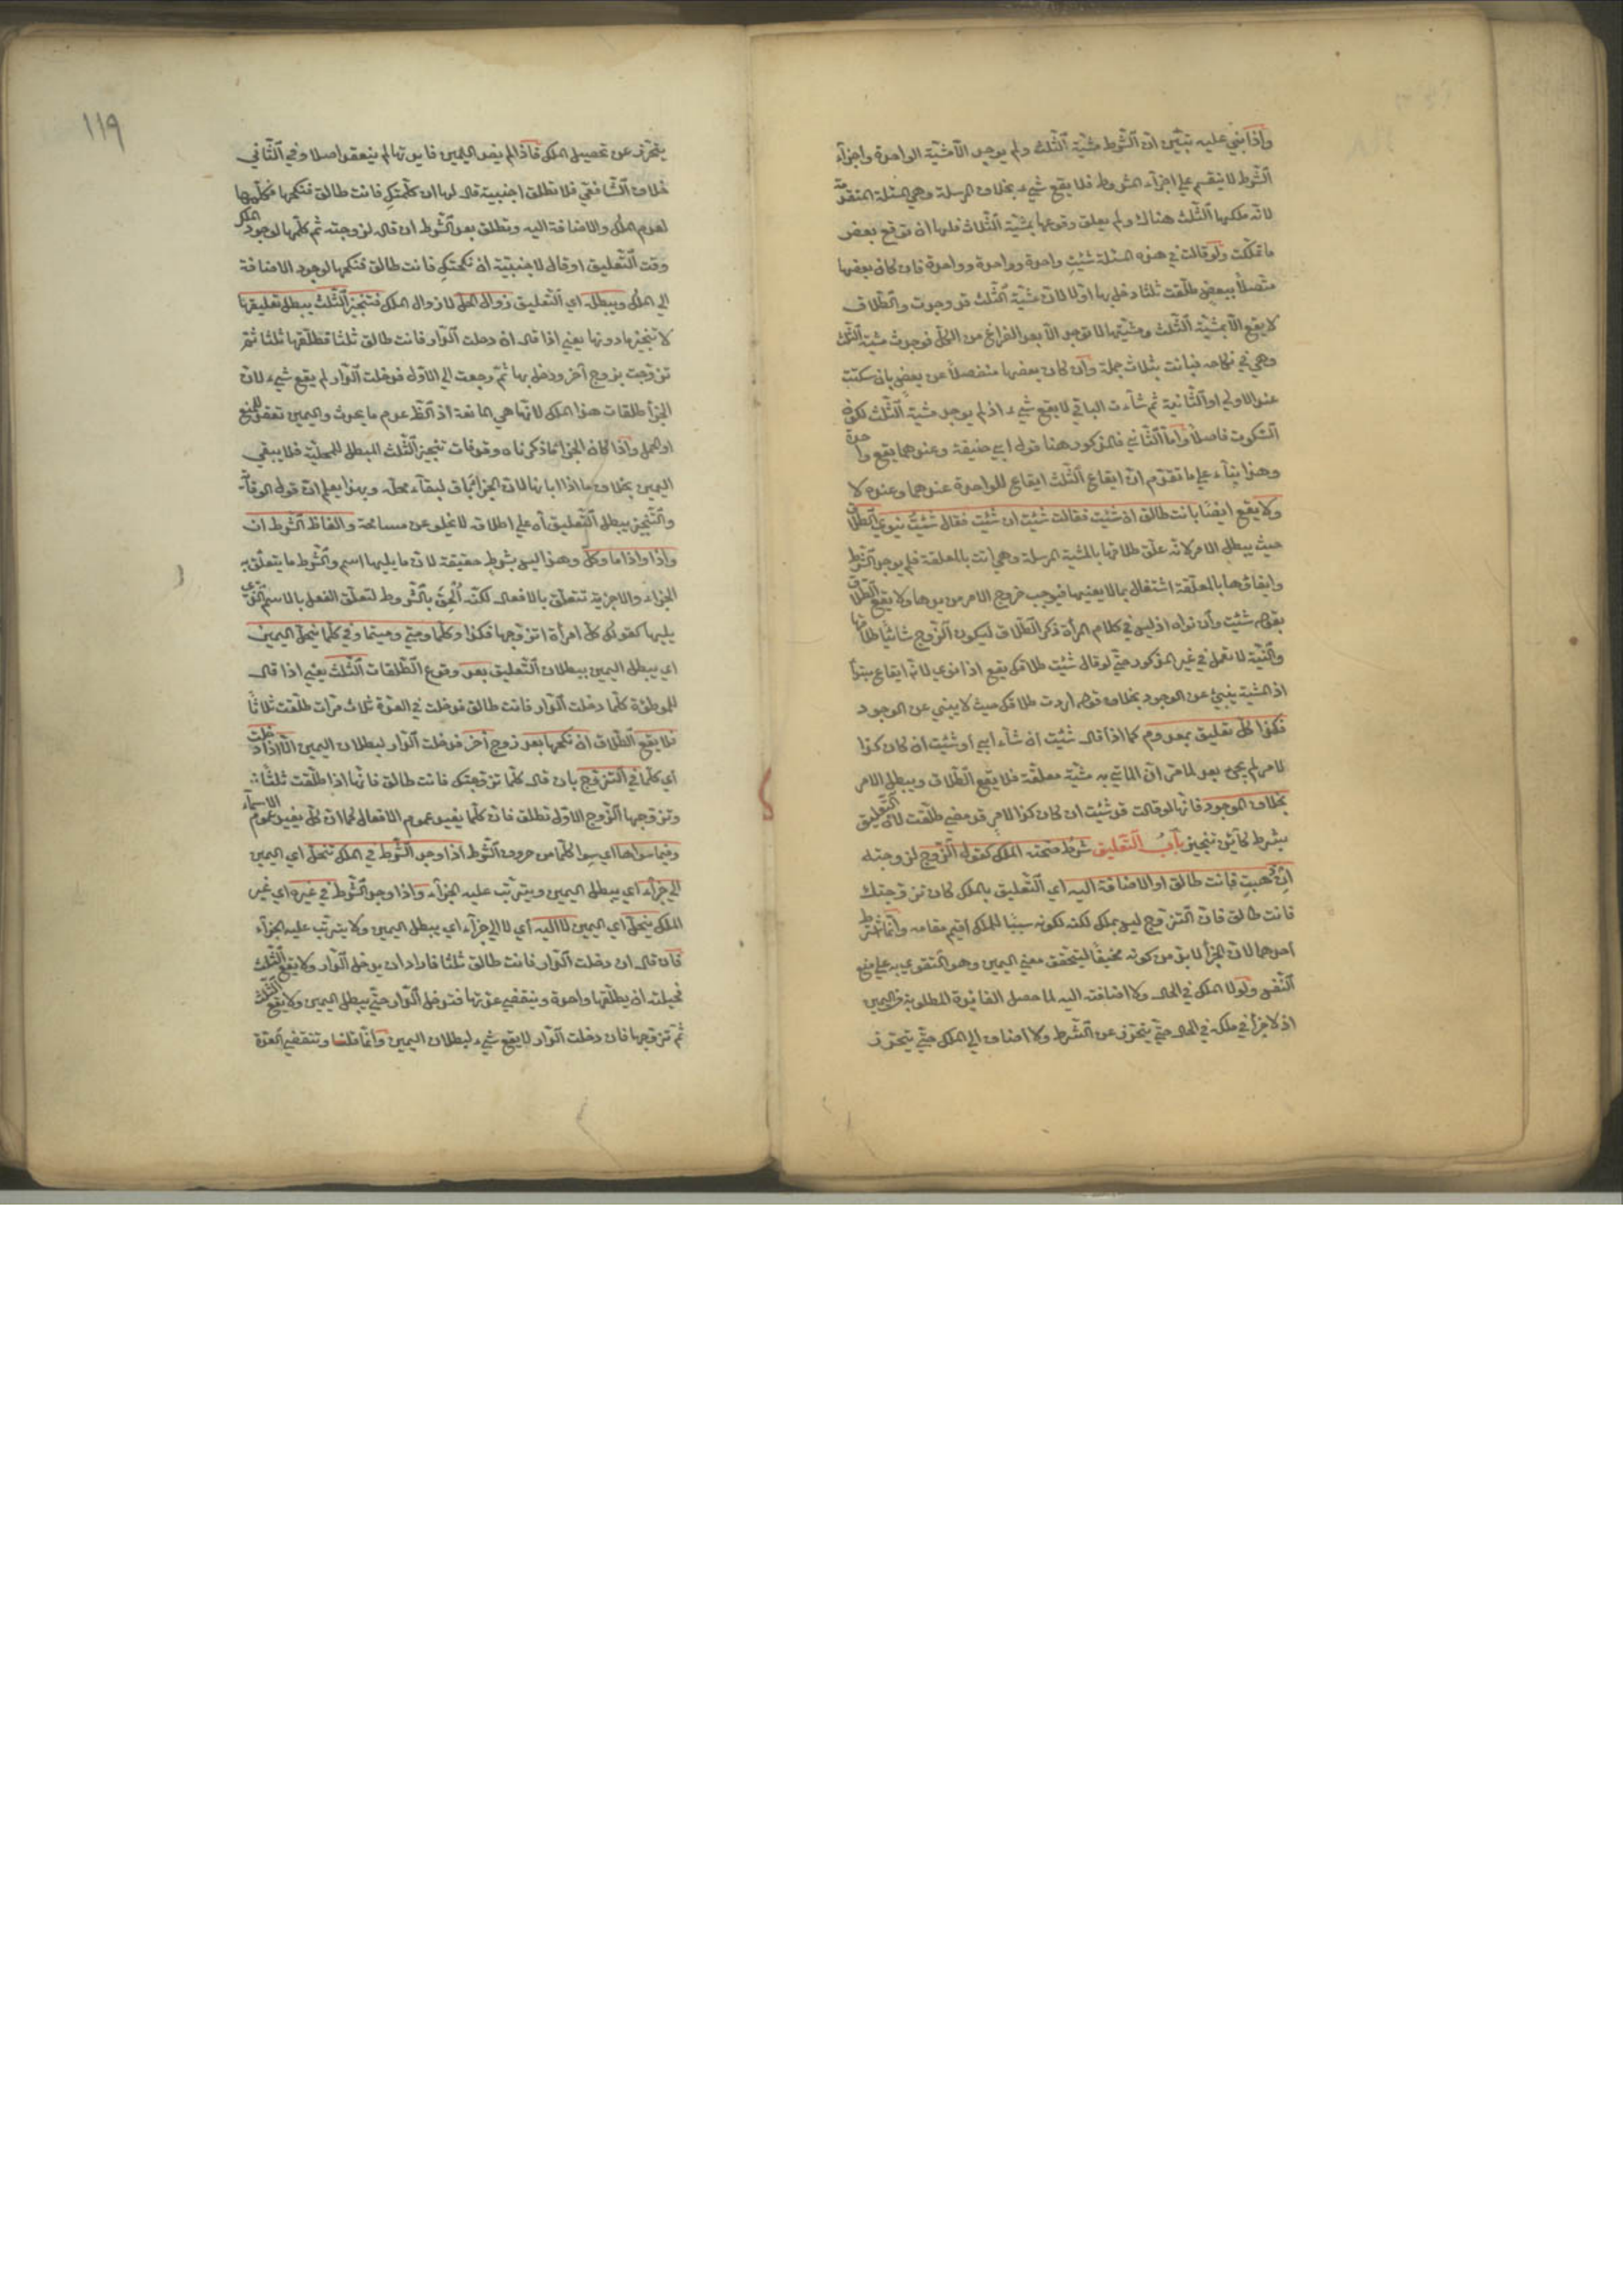 واذا بني عليه تبيّن انّ الشّرط مشيّة الثّلث ولم يوجد الّا مشيّة الواحدة واجزاء
الشّرط لا ينقسم علي اجزاء المشروط فلا يقع شيء بخلاف المرسلة وهي المسئلة المتقدّمة
لانّه ملكها الثّلث هناك ولم يعلق وقوعها بمشيّة الثّلاث فلها ان توقع بعض
ما تملّكت ولو قالت في هذه المسئلة شئت واحدة وواحدة وواحدة فان كان بعضها
متّصلاً ببعض طلّقت ثلثا دخل بها اولا لانّ مشيّة الثّلث قد وجدت والطّلاق
لا يقع الّا بمشيّة الثّلث ومشيّتها لا توجد الّا بعد الفراغ من الكلّ فوجدت مشيّة الثّلث
وهي في نكاحه فبانت بثلاث جملة وان كان بعضها منفصلاً عن بعض بان سكتت
عند الاولي او الثّانية ثم شاءت الباقي لا يقع شيء اذ لم يوجد مشيّة الثّلث لكون
السّكوت فاصلا وامّا الثّاني فالمذكور هنا قول ابي حنيفة وعندهما يقع واحدة
وهذا بناء علي ما تقدّم انّ ايقاع الثّلث ايقاع للواحدة عندهما وعنده لا
ولا يقع ايضًا بانت طالق ان شئت فقالت شئت ان شئت فقال شئت ينوي الطّلاق
حيث يبطل الامر لانّه علّق طلاقها بالمشيّة المرسلة وهي اتت بالمعلقة فلم يوجد الشّرط
واتيانها بالمعلّقة اشتغال بما لا يعنيها فيوجب خروج الامر من يدها ولا يقع الطّلاق
بقوله شئت وان نواه اذ ليس في كلام المرأة ذكر الطّلاق ليكون الزّوج شائيا طلاقها
والنّيّة لا تعمل في غير المذكور حتّي لو قال شئت طلاقك يقع اذا نوي لانّه ايقاع مبتدأ
اذ المشيّة ينبئ عن الوجود بخلاف قوله اردت طلاقك حيث لا ينبئ عن الوجود
فكذا كلّ تعليق بمعدوم كما اذا قال شئت ان شاء ابي او شئت ان كان كذا
لامر لم يجئ بعد لما مرّ انّ الماتي به مشيّة معلّقة فلا يقع الطّلاق ويبطل الامر
بخلاف الموجود فانّها لو قالت قد شئت ان كان كذا لامر قد مضي طلّقت لانّ التّعليق
بشرط كائن تنجيز باب التّعليق شرط صحّته الملك كقول الزّوج لزوجته
ان ذهبت فانت طالق او الاضافة اليه اي التّعليق بالملك كان تزوّجتك
فانت طالق فانّ التّزوّج ليس بملك لكنّه لكونه سببًا للملك اقيم مقامه وانّما شرط
احدهما لانّ الجزا لا بدّ من كونه مخيفًا ليتحقق معني اليمين وهو التّقوي به علي منع
النّفس ولولا الملك في الحال ولا اضافته اليه لما حصل الفائدة المطلوبة من اليمين
اذ لا جزأ في ملكه في الحال حتّي يتحرّز عن الشّرط ولا اضاف الي الملك حتّي يتحرّز
١١٩
يتحرّز عن تحصيل الملك فاذا لم يفد اليمين فايدتها لم ينعقد اصلا وفي الثّاني
خلاف الشّافعي فلا تطلق اجنبية قال لها ان كلّمتك فانت طالق فنكحها فكلّمها
لعدم الملك والاضافة اليه وتطلق بعد الشّرط ان قال لزوجته ثم كلّمها لوجود الملك
وقت التّعليق او قال لاجنبيّة ان نكحتك فانت طالق فنكحها لوجود الاضافة
الي الملك ويبطله اي التّعليق زوال الحلّ لا زوال الملك فتنجيز الثّلث يبطل تعليقها
لا تنجيز ما دونها يعني اذا قال ان دخلت الدّار فانت طالق ثلثا فطلّقها ثلثا ثمّ
تزوّجت بزوج آخر ودخل بها ثمّ رجعت الي الاوّل فدخلت الدّار لم يقع شيء لانّ
الجزأ طلقات هذا الملك لانّها هي المانعة اذ الظّ عدم ما يحدث واليمين تعقد للمنع
او الحمل واذا كان الجزا ما ذكرناه وقد فات تنجيز الثّلث المبطل للمحلّيّة فلا يبقي
اليمين بخلاف ما اذا ابانها لانّ الجزا باق لبقاء محلّه وبهذا يعلم انّ قول الوقاية
والتّنجيز يبطل التّعليق اه علي اطلاقه لا يخلو عن مسامحة والفاظ الشّرط ان
واذا واذا ما وكلّ وهذا ليس بشرط حقيقة لانّ ما يليها اسم والشّرط ما يتعلّق به
الجزاء والاجزية تتعلّق بالافعال لكنّه اُلحِق بالشّروط لتعلّق الفعل بالاسم الّذي
يليها كقولك كلّ امرأة اتزوّجها فكذا وكلّما ومتي ومتيما وفي كلّما ينحلّ اليمين
اي يبطل اليمين ببطلان التّعليق بعد وقوع الطّلقات الثّلث يعني اذا قال
للموطوة كلّما دخلت الدّار فانت طالق فدخلت في العدّة ثلاث مرّات طلّقت ثلاثًا
فلا يقع الطّلاق ان نكحها بعد زوج آخر فدخلت الدّار لبطلان اليمين الّا اذا دخلت
اي كلّما في التّزوّج بان قال كلّما تزوّجتك فانت طالق فانّها اذا طلّقت ثلثا
وتزوّجها الزّوج الاوّل تطلق فانّ كلّما يفيد عموم الافعال كما انّ كلّ يفيد عموم الاسماء
وفيما سواها اي سوا كلّما من حروف الشّرط اذا وجد الشّرط في الملك تنحلّ اي اليمين
الي جزاء اي يبطل اليمين ويترتّب عليه الجزاء واذا وجد الشّرط في غيره اي غير
الملك ينحلّ اي اليمين لا اليه اي لا الي جزاء اي يبطل اليمين ولا يترتّب عليه الجزاء
فان قال ان دخلت الدّار فانت طالق ثلثا فاراد ان يدخل الدّار ولا يقع الثّلث
فحيلته ان يطلّقها واحدة وينقضي عدّتها فتدخل الدّار حتّي يبطل اليمين ولا يقع الثّلث
ثمّ تزوّجها فان دخلت الدّار لا يقع شيء لبطلان اليمين وانّما قلنا وتنقضي العدّة